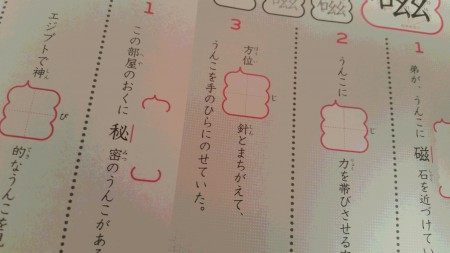 磁
1
弟が うんこに 磁石を近づけてい
2
うんこに じ 力を帯びさせる
3
方位 ほうい じ 針 しん とまちがえて、
うんこを手のひらにのせていた。
1
この部屋 へや のおくに 秘密 みつ のうんこがある
エジプトで神 しん ぴ 的 てき なうんこを見